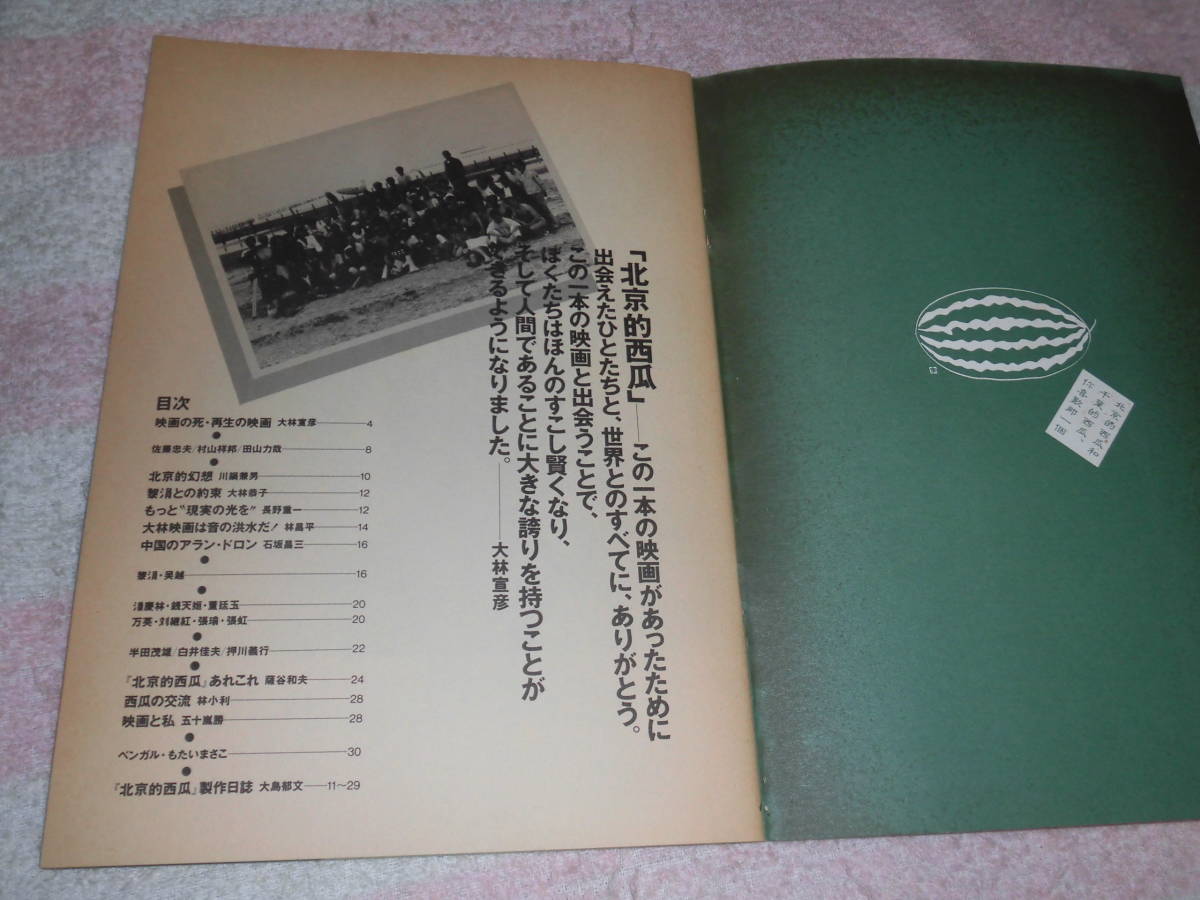 「北京的西瓜」――この一本の映画があったために
出会えたひとたちと、世界とのすべてに、ありがとう。
この一本の映画と出会うことで、
ぼくたちはほんのすこし賢くなり、
そして人間であることに大きな誇りを持つことが
できるようになりました。
――大林宣彦
目次
映画の死・再生の映画 大林宣彦――4
佐藤忠夫/村山祥邦/田山力哉――8
北京的幻想 川鍋兼男――10
黎涓との約束 大林恭子――12
もっと“現実の光を” 長野重一――12
大林映画は音の洪水だ! 林昌平――14
中国のアラン・ドロン 石坂昌三――16
黎涓・吴越――16
――20
万英・刘継紅・張瑞・張虹――20
半田茂雄/白井佳夫/押川義行――22
『北京的西瓜』あれこれ 薩谷和夫――24
西瓜の交流 林小利――28
映画と私 五十嵐勝――28
ベンガル・もたいまさこ――30
『北京的西瓜』製作日誌 大島郁文――11〜29
北京的西瓜和
千葉的西瓜、
你喜歓那一個